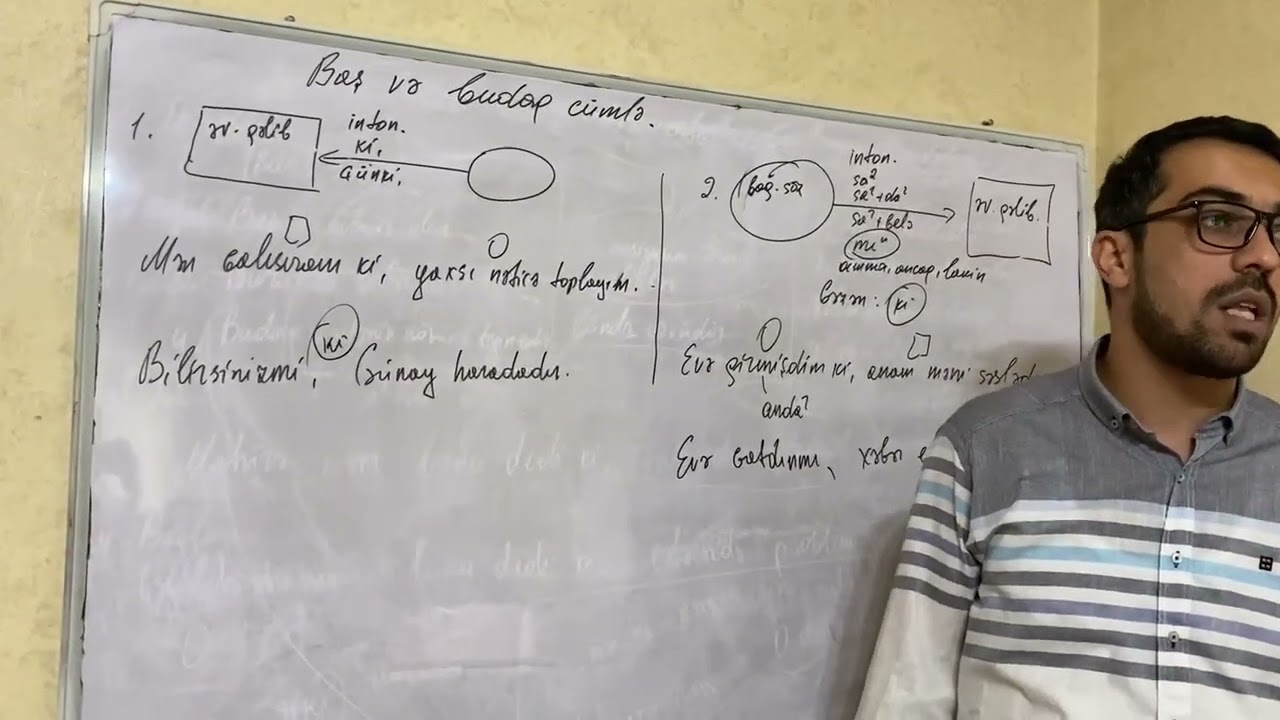 Baş və budaq cümlə.
1.
əv. gəlib
inton.
ki,
çünki,
Mən çalışıram ki, yaxşı nəticə toplayım.
ki
Bilirsinizmi, Günay haradadır.
2.
bağ. söz
inton.
sa²
sa²+da²
sa²+belə
mi⁴
amma, ancaq, lakin
bəzən: ki
əv. gəlib.
Evə girmişdim ki, anam məni səslədi
anda?
Evə çatdınmı, xəbər e